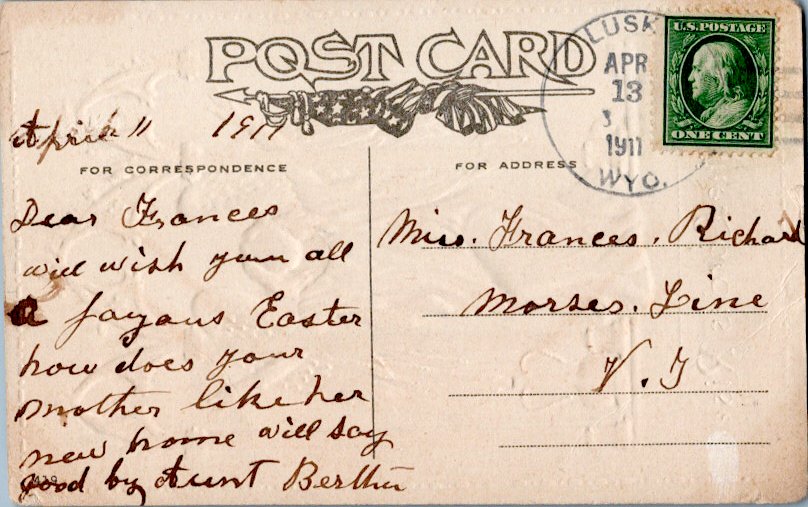 POST CARD
LUSK
APR
13
3
1911
WYO.
U.S. POSTAGE
ONE CENT
April 11 1911
FOR CORRESPONDENCE
FOR ADDRESS
Dear Frances
will wish you all
a joyous Easter
how does your
mother like her
new home will say
good by Aunt Bertha
Miss. Frances. Richard
Morses. Line
V. T